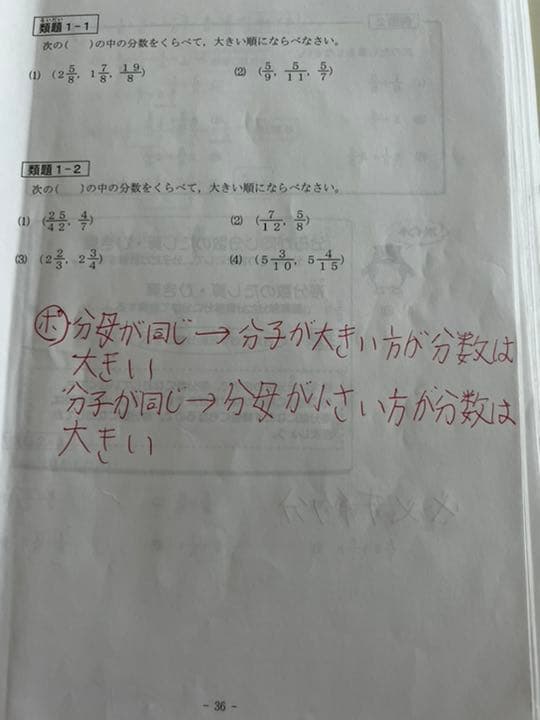 るいだい
類題1-1
次の( )の中の分数をくらべて,大きい順にならべなさい。
(1) (2 5/8, 1 7/8, 19/8) (2) (5/9, 5/11, 5/7)
類題1-2
次の( )の中の分数をくらべて,大きい順にならべなさい。
(1) (25/42, 4/7) (2) (7/12, 5/8)
(3) (2 2/3, 2 3/4) (4) (5 3/10, 5 4/15)
ポ 分母が同じ→分子が大きい方が分数は
大きい
分子が同じ→分母が小さい方が分数は
大きい
- 36 -